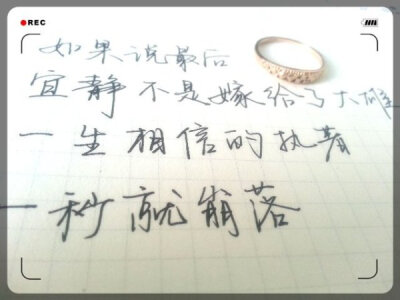 REC
如果说最后
宜静不是嫁给了大雄
一生相信的执着
一秒就崩落